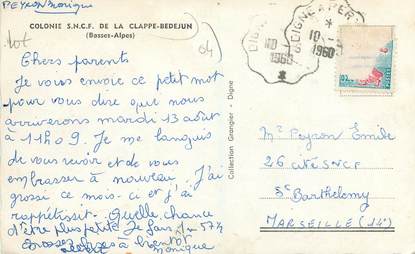 PEYRON Monique
COLONIE S.N.C.F. DE LA CLAPPE-BEDEJUN
(Basses-Alpes)
Chers parents
Je vous envoie ce petit mot
pour vous dire que nous
arriverons mardi 13 août
à 11h09. Je me languis
de vous revoir et de vous
embrasser à nouveau. J'ai
grossi ce mois-ci et j'ai
rappetissit. Quelle chance
d'être plus petite. Je fais 1m 57½
Grosses bises à bientôt
monique
Collection Grangier - Digne
DIGNE A
1960
DIGNE A PER
10
1960
Mr Peyron Emile
26 cité SNCF
St Barthelemy
MARSEILLE (14e)